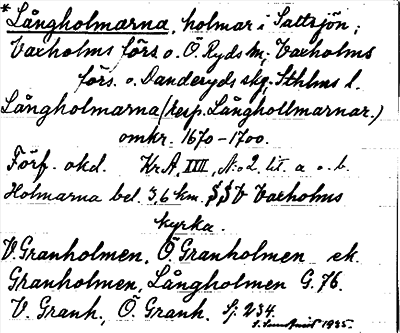 * Långholmarna, holmar i Saltsjön;
Vaxholms förs o. Ö. Ryds sn; Vaxholms
förs. o. Danderyds skg; Sthlms l.
Långholmarna (resp. Långhollmarnar.)
omkr. 1670-1700.
Förf. okd. Kr.A, XIII, N:o 2, lit. a o. b.
Holmarna bel. 3,6 km. SSV Vaxholms
kyrka.
V. Granholmen, Ö. Granholmen ek.
Granholmen, Långholmen G. 76.
V. Granh., Ö. Granh. Sj: 234.
1935.